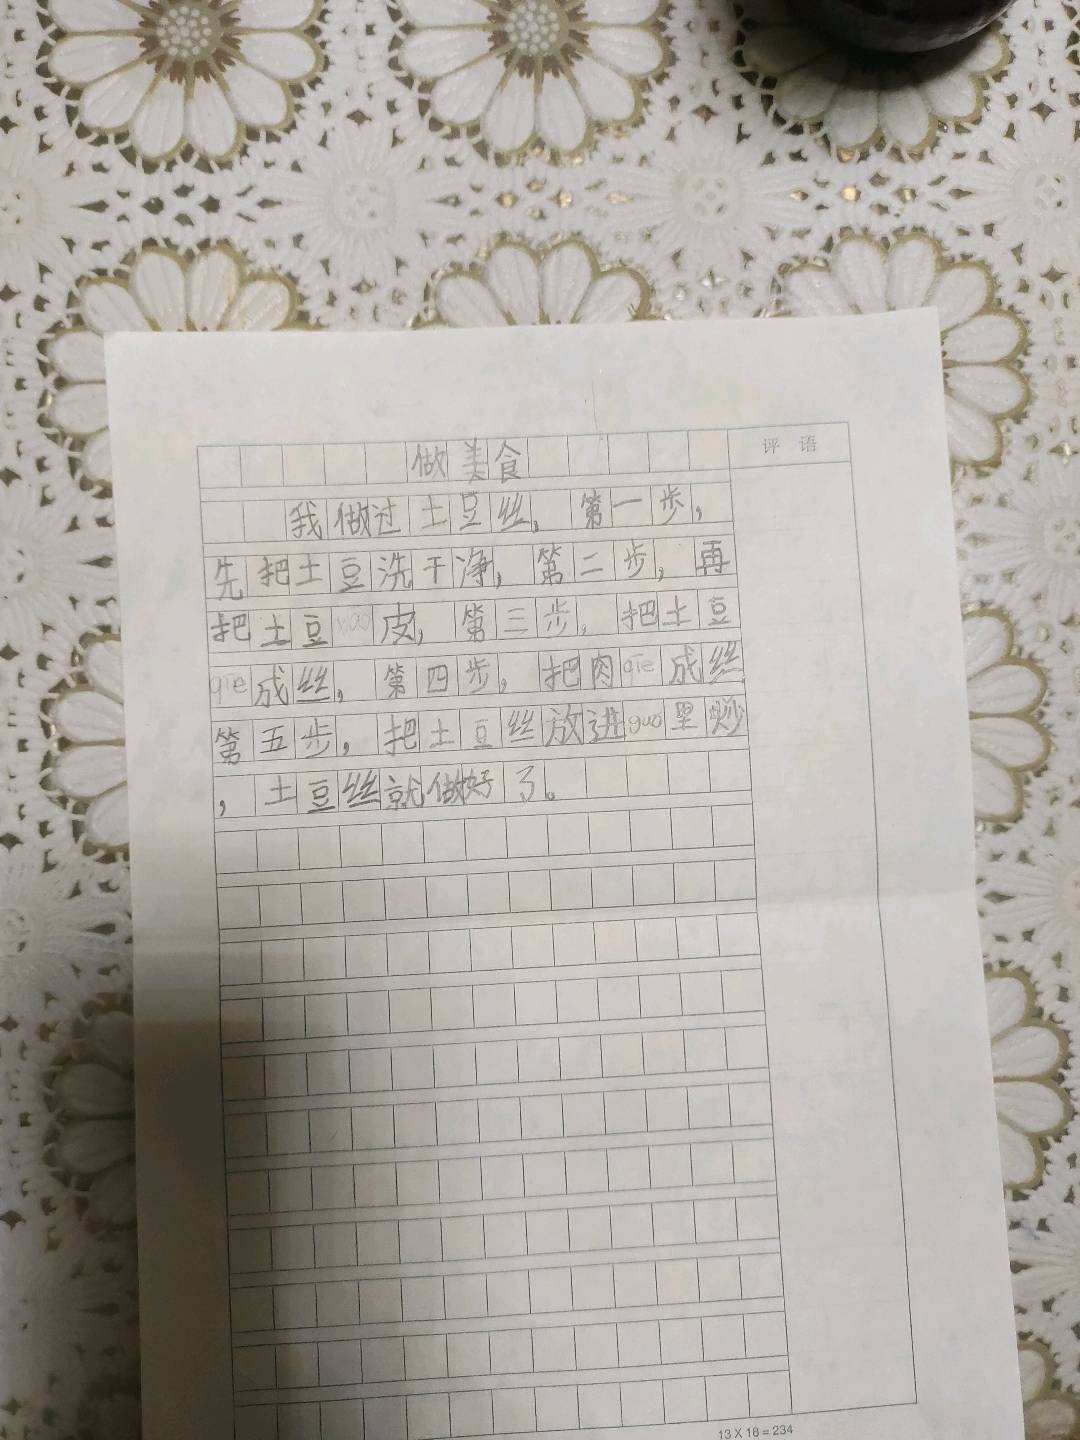 做美食
评语
我做过土豆丝，第一步，
先把土豆洗干净，第二步，再
把土豆皮，第三步，把土豆
qiē成丝，第四步，把肉qiē成丝
第五步，把土豆丝放进guō里炒
，土豆丝就做好了。
13 X 18 = 234